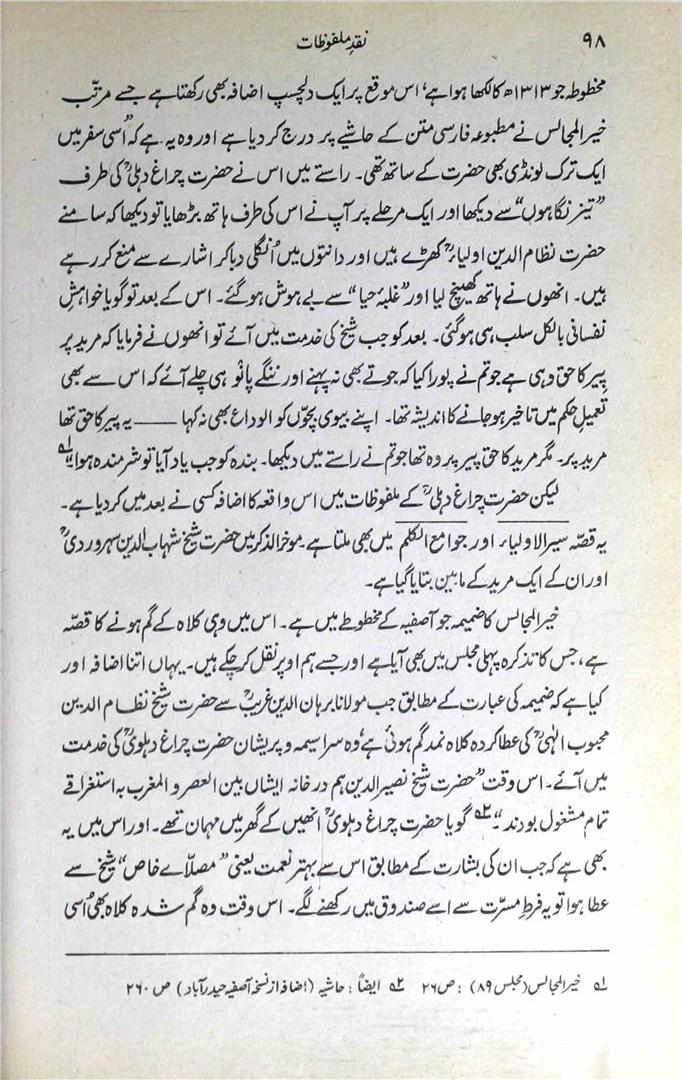 ۹۸
نقدِ ملفوظات
مخطوطہ جو ۱۳۱۳ھ کا لکھا ہوا ہے، اس موقع پر ایک دلچسپ اضافہ بھی رکھتا ہے جسے مرتّب
خیر المجالس نے مطبوعہ فارسی متن کے حاشیے پر درج کر دیا ہے اور وہ یہ ہے کہ ”اسی سفر میں
ایک ترک لونڈی بھی حضرت کے ساتھ تھی۔ راستے میں اس نے حضرت چراغ دہلیؒ کی طرف
”تیز نگاہوں“ سے دیکھا اور ایک مرحلے پر آپ نے اس کی طرف ہاتھ بڑھایا تو دیکھا کہ سامنے
حضرت نظام الدین اولیاءؒ کھڑے ہیں اور دانتوں میں اُنگلی دبا کر اشارے سے منع کر رہے
ہیں۔ انھوں نے ہاتھ کھینچ لیا اور ”غلبۂ حیا“ سے بے ہوش ہو گئے۔ اس کے بعد تو گویا خواہشِ
نفسانی بالکل سلب ہی ہو گئی۔ بعد کو جب شیخ کی خدمت میں آئے تو انھوں نے فرمایا کہ مرید پر
پیر کا حق وہی ہے جو تم نے پورا کیا کہ جوتے بھی نہ پہنے اور ننگے پانْو ہی چلے آئے کہ اس سے بھی
تعمیلِ حکم میں تاخیر ہو جانے کا اندیشہ تھا۔ اپنے بیوی بچّوں کو الوداع بھی نہ کہا ــــــ یہ پیر کا حق تھا
مرید پر۔ مگر مرید کا حق پیر پر وہ تھا جو تم نے راستے میں دیکھا۔ بندہ کو جب یاد آیا تو شرمندہ ہوا۔“ ۱؎
لیکن حضرت چراغ دہلیؒ کے ملفوظات میں اس واقعہ کا اضافہ کسی نے بعد میں کر دیا ہے۔
یہ قصّہ سیر الاولیاء اور جوامع الکلم میں بھی ملتا ہے۔ موخر الذکر میں حضرت شیخ شہاب الدین سہروردیؒ
اور ان کے ایک مرید کے مابین بتایا گیا ہے۔
خیر المجالس کا ضمیمہ جو آصفیہ کے مخطوطے میں ہے۔ اس میں وہی کلاہ کے گم ہونے کا قصّہ
ہے، جس کا تذکرہ پہلی مجلس میں بھی آیا ہے اور جسے ہم اوپر نقل کر چکے ہیں۔ یہاں اتنا اضافہ اور
کیا ہے کہ ضمیمہ کی عبارت کے مطابق جب مولانا برہان الدین غریبؒ سے حضرت شیخ نظام الدین
محبوب الٰہیؒ کی عطا کردہ کلاہ نمد گم ہوئی ہے، وہ سراسیمہ و پریشان حضرت چراغ دہلویؒ کی خدمت
میں آئے۔ اس وقت ”حضرت شیخ نصیر الدین ہم در خانہ ایشاں بین العصر و المغرب بہ استغراقے
تمام مشغول بودند“۔ ۲؎ گویا حضرت چراغ دہلویؒ انھیں کے گھر میں مہمان تھے۔ اور اس میں یہ
بھی ہے کہ جب ان کی بشارت کے مطابق اس سے بہتر نعمت یعنی ”مصلّاے خاص“ شیخ سے
عطا ہوا تو یہ فرطِ مسرّت سے اسے صندوق میں رکھنے لگے۔ اس وقت وہ گم شدہ کلاہ بھی اُسی
۱؎ خیر المجالس (مجلس ۸۹) : ص ۲۶ ۲؎ ایضاً : حاشیہ (اضافہ از نسخہ آصفیہ حیدرآباد) ص ۲۶۰